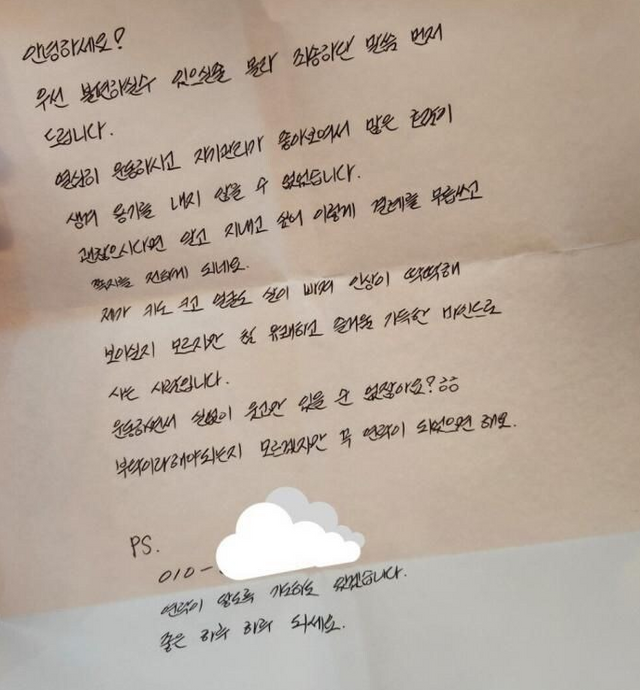 안녕하세요?
우선 불편하실수 있으실줄 몰라 죄송하단 말씀 먼저
드립니다.
열심히 운동하시고 자기관리가 좋아보여서 많은 호감이
생겨 용기를 내지 않을 수 없었습니다.
괜찮으시다면 알고 지내고 싶어 이렇게 결례를 무릅쓰고
쪽지를 전하게 되네요.
제가 키도 크고 얼굴도 살이 빠져 인상이 딱딱해
보이실지 모르지만 참 유쾌하고 즐거움 가득한 마인드로
사는 사람입니다.
운동하면서 실없이 웃고만 있을 수 없잖아요?ㅎㅎ
부탁이라해야되는지 모르겠지만 꼭 연락이 되었으면 해요.
PS.
010-
연락이 않도록 기도하도 있겠습니다.
좋은 하루 하루 되세요.